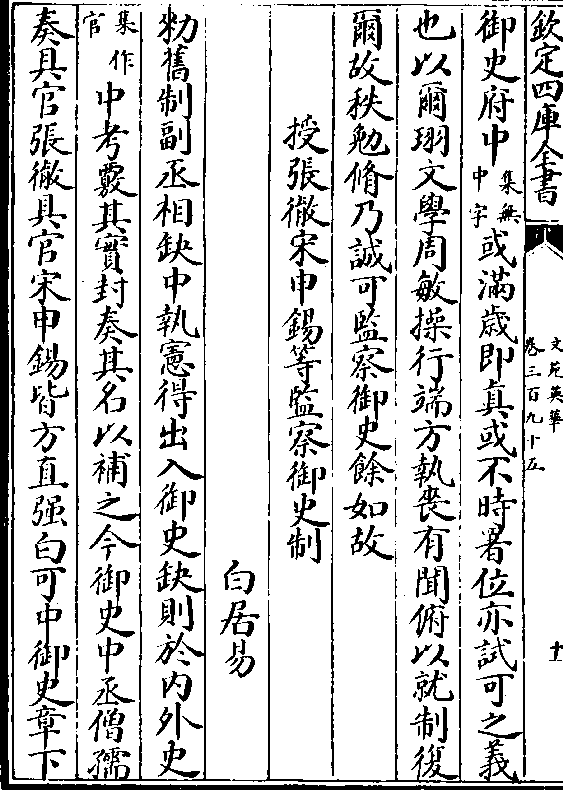 欽定四庫全書
文苑英華
卷三百九十五
十
御史府中集無中字或滿歳即真或不時署位亦試可之義
也以爾珝文學周敏操行端方執喪有聞俯以就制復
爾故秩勉脩乃誠可監察御史餘如故
授張徹宋申錫等監察御史制
白居易
勑舊制副丞相缺中執憲得出入御史缺則於内外史
集作官中考覈其實封奏其名以補之今御史中丞僧孺
奏具官張徹具官宋申錫皆方直强白可中御史章下